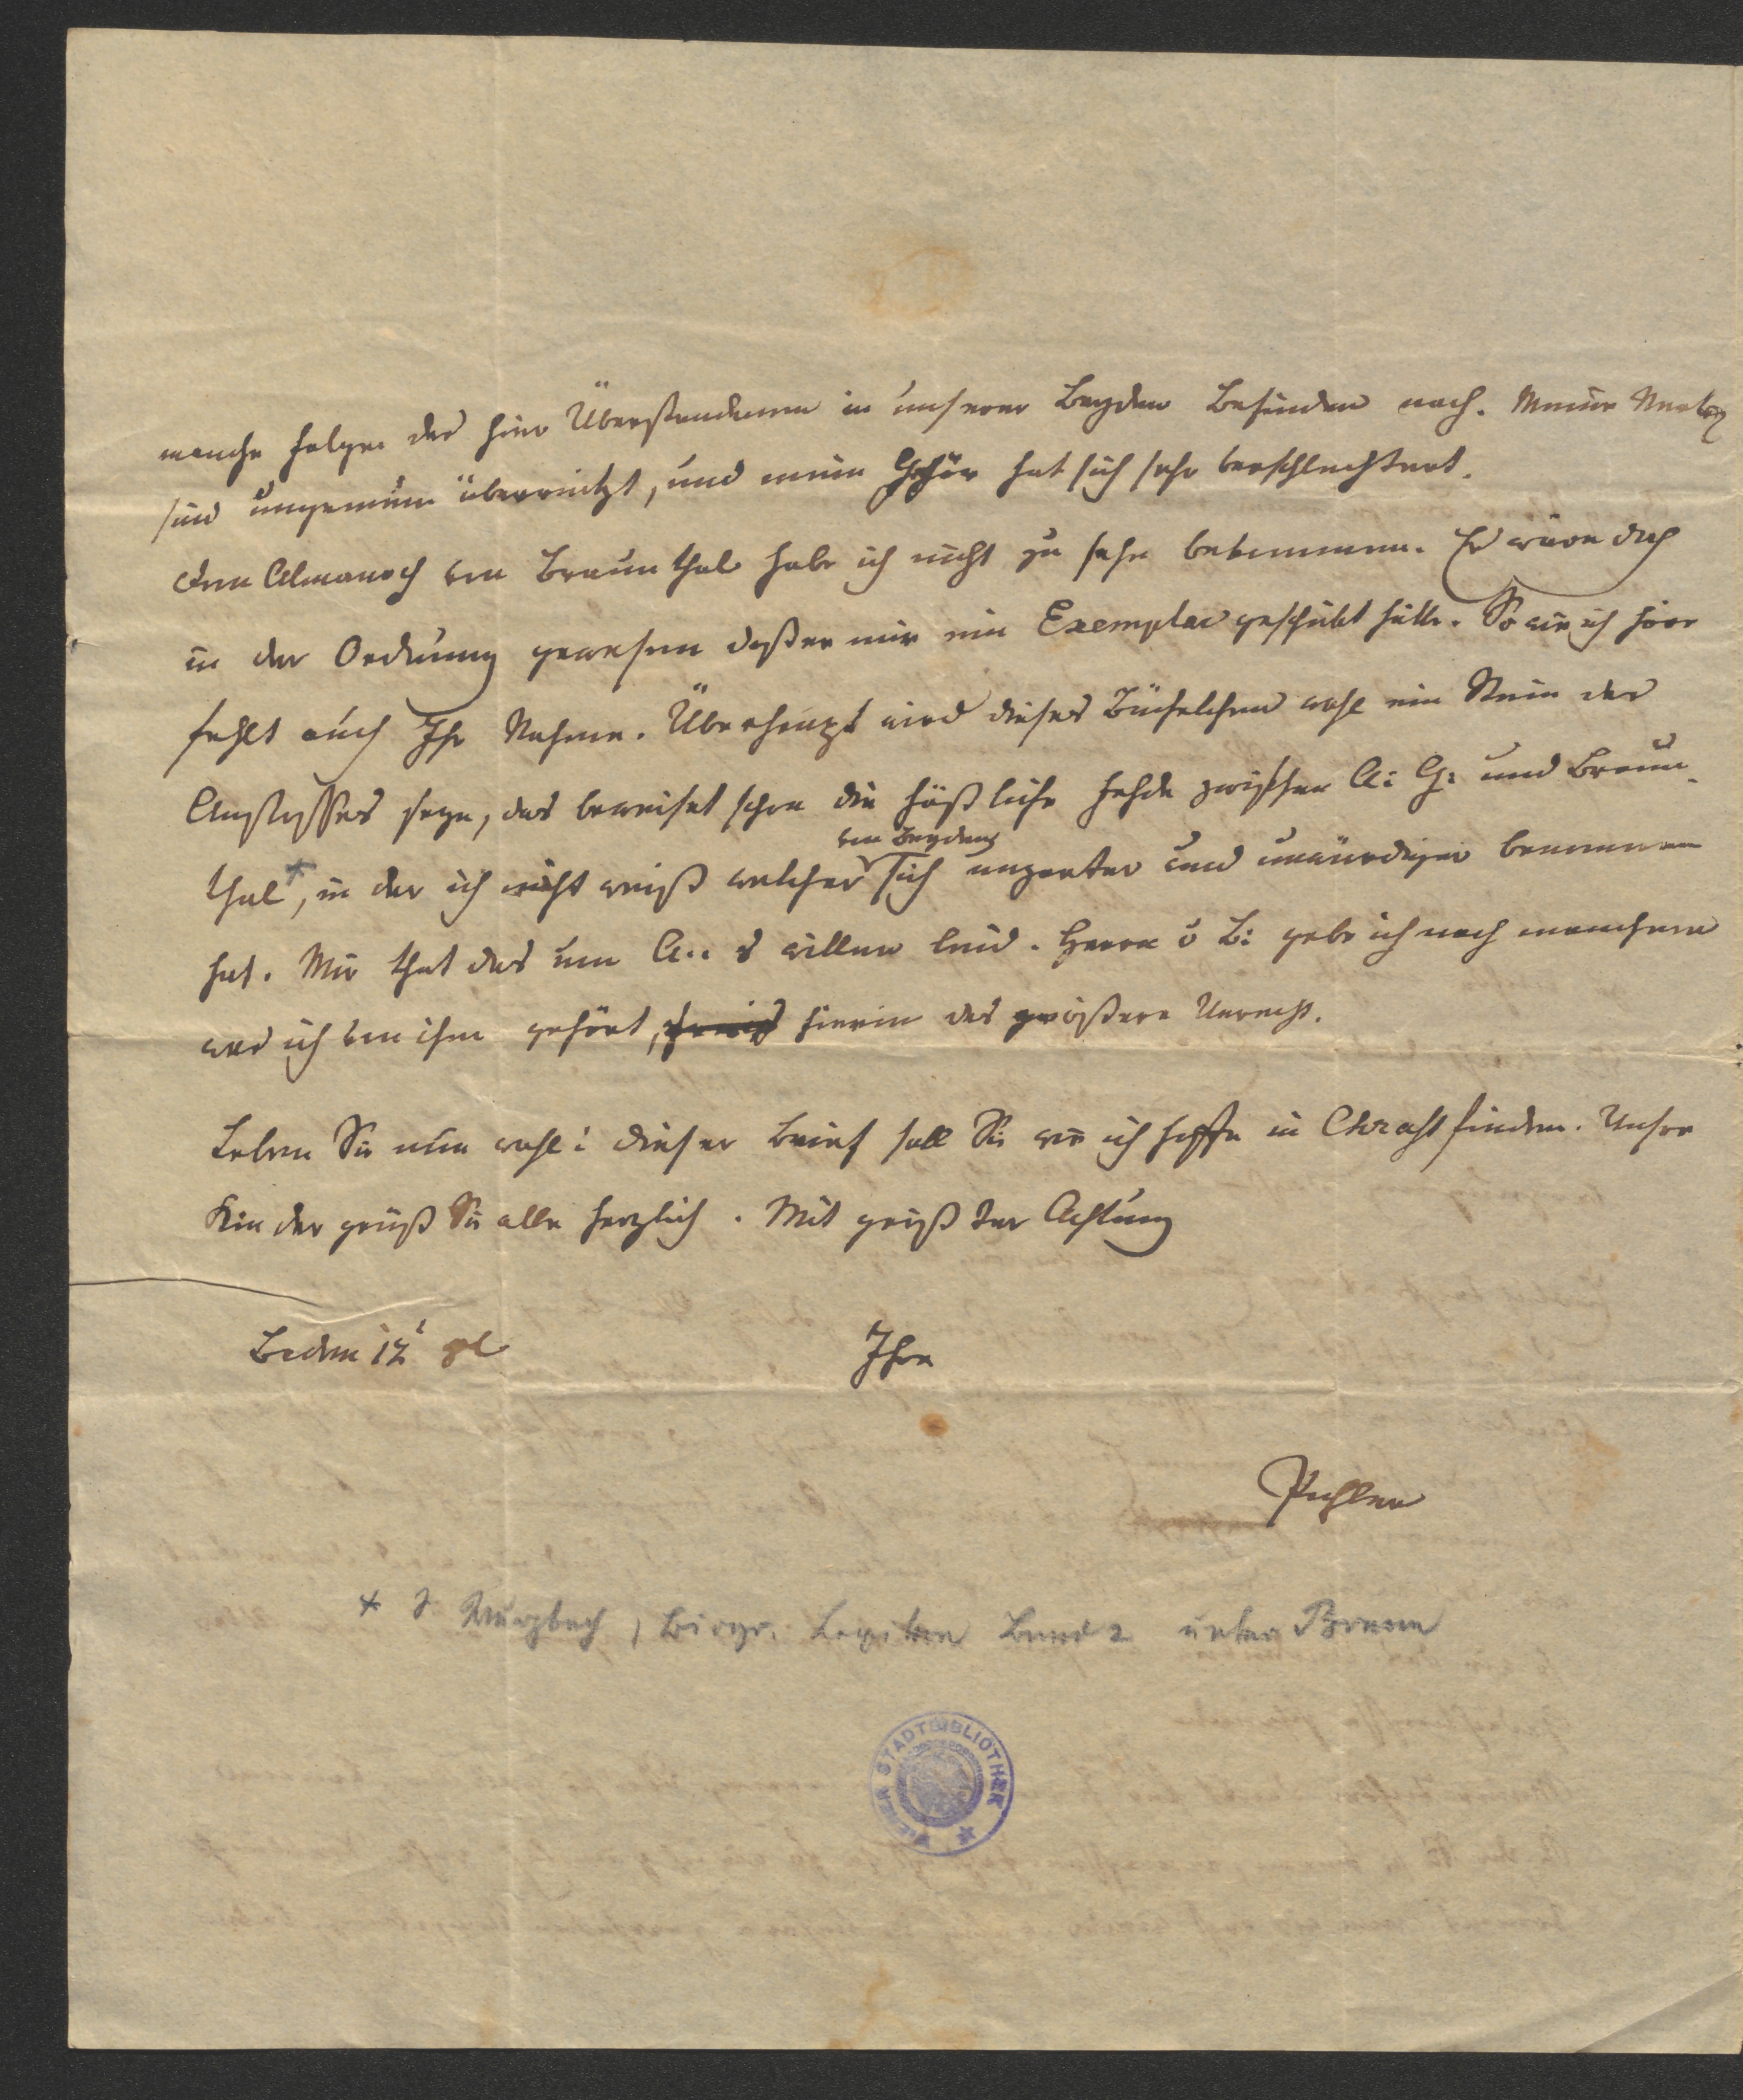 manche Folgen des hier Überstandenen in unserer Beyden Befinden nach. Meine Nerven
sind ungemein überreitzt, und mein Gehör hat sich sehr verschlechtert.
Den Almanach von Braunthal habe ich nicht zu sehn bekommen. Es wäre doch
in der Ordnung gewesen daß er mir ein Exemplar geschickt hätte. So wie ich höre
fehlt auch Ihr Nahme. Überhaupt wird dieses Büchelchen wohl ein Stein des
Anstosses seyn, das beweiset schon die häßliche Fehde zwischen A: G: und Braun-
von Beyden
thal*, in der ich nicht weiß welcher sich unzarter und unwürdiger benommen
hat. Mir that das um A.. s willen leid. Herrn v B: gebe ich nach manchem
was ich von ihm gehört, hierin das größere Unrecht.
Leben Sie nun wohl! dieser Brief soll Sie wie ich hoffe in finden. Unsre
Kinder grüß Sie alle herzlich. Mit größter Achtung
Baden 12t
Ihre
Pichler
* S. Wurzbach, Biogr. Lexikon Band 2 unter Braun
WIENER STADTBIBLIOTHEK